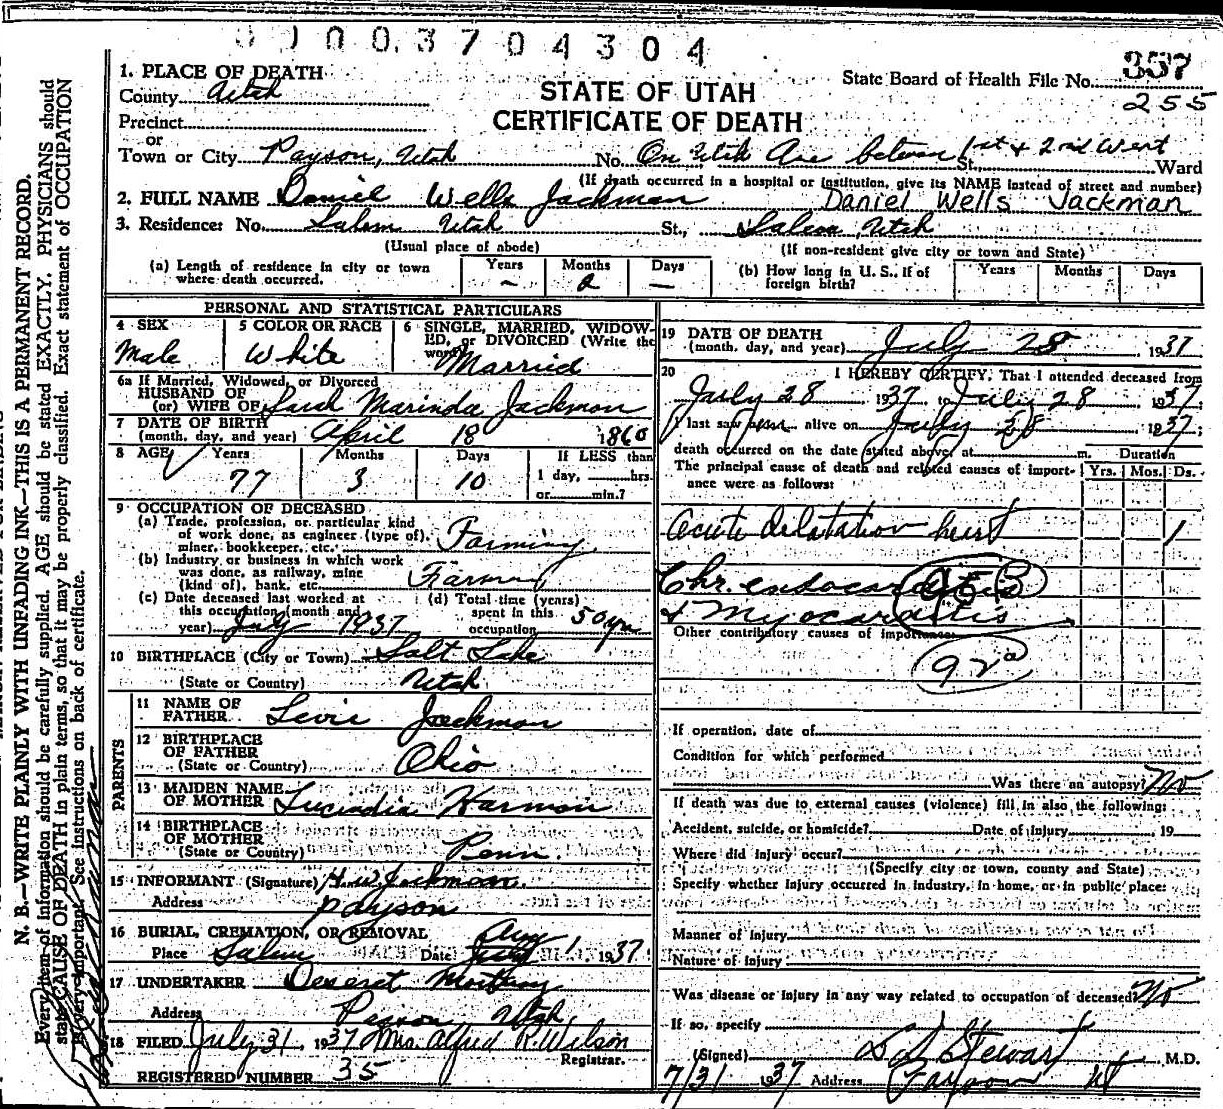 0003704304
1. PLACE OF DEATH
County Utah
Precinct
or
Town or City Payson, Utah No. On Utah Ave between 1st & 2nd West St., Ward
STATE OF UTAH
CERTIFICATE OF DEATH
State Board of Health File No. 357
255
(If death occurred in a hospital or institution, give its NAME instead of street and number)
2. FULL NAME Daniel Wells Jackman Daniel Wells Jackman
3. Residence: No. Salem Utah St., Salem, Utah
(Usual place of abode) (If non-resident give city or town and State)
(a) Length of residence in city or town where death occurred. Years – Months 2 Days –
(b) How long in U. S., if of foreign birth? Years Months Days
PERSONAL AND STATISTICAL PARTICULARS
4 SEX Male
5 COLOR OR RACE White
6 SINGLE, MARRIED, WIDOWED, or DIVORCED (Write the word) Married
6a If Married, Widowed, or Divorced
HUSBAND OF
(or) WIFE OF Sarah Marinda Jackman
7 DATE OF BIRTH
(month, day, and year) April 18 1860
8 AGE Years 77 Months 3 Days 10 If LESS than 1 day, hrs. or min.?
9 OCCUPATION OF DECEASED
(a) Trade, profession, or particular kind of work done, as engineer (type of), miner, bookkeeper, etc. Farming
(b) Industry or business in which work was done, as railway, mine (kind of), bank, etc. Farming
(c) Date deceased last worked at this occupation (month and year) July 1937
(d) Total time (years) spent in this occupation 50 yrs
10 BIRTHPLACE (City or Town) Salt Lake
(State or Country) Utah
PARENTS
11 NAME OF FATHER Levi Jackman
12 BIRTHPLACE OF FATHER
(State or Country) Ohio
13 MAIDEN NAME OF MOTHER Harmon
14 BIRTHPLACE OF MOTHER
(State or Country) Penn.
15 INFORMANT (Signature) H. W. Jackman.
Address Payson
16 BURIAL, CREMATION, OR REMOVAL
Place Salem Date Aug 1 1937
17 UNDERTAKER Deseret Mortuary
Address Payson Utah
18 FILED July 31, 1937 Mrs. Alfred R. Wilson
Registrar.
REGISTERED NUMBER 35
19 DATE OF DEATH
(month, day, and year) July 28, 1937
20 I HEREBY CERTIFY, That I attended deceased from
July 28 1937 to July 28 1937,
I last saw him alive on July 28 1937;
death occurred on the date stated above, at m. Duration
The principal cause of death and related causes of importance were as follows: Yrs. Mos. Ds.
Acute dilatation heart 1
Chr. endocarditis
& Myocarditis
Other contributory causes of importance:
92a
If operation, date of
Condition for which performed
Was there an autopsy? No
If death was due to external causes (violence) fill in also the following:
Accident, suicide, or homicide? Date of injury 19
Where did injury occur?
(Specify city or town, county and State)
Specify whether injury occurred in industry, in home, or in public place:
Manner of injury
Nature of injury
Was disease or injury in any way related to occupation of deceased? No
If so, specify
(Signed) Stewart M.D.
7/31 1937 Address Payson Ut
N. B.—WRITE PLAINLY WITH UNFADING INK—THIS IS A PERMANENT RECORD.
Every item of information should be carefully supplied. AGE should be stated EXACTLY. PHYSICIANS should
state CAUSE OF DEATH in plain terms, so that it may be properly classified. Exact statement of OCCUPATION
is very important. See instructions on back of certificate.